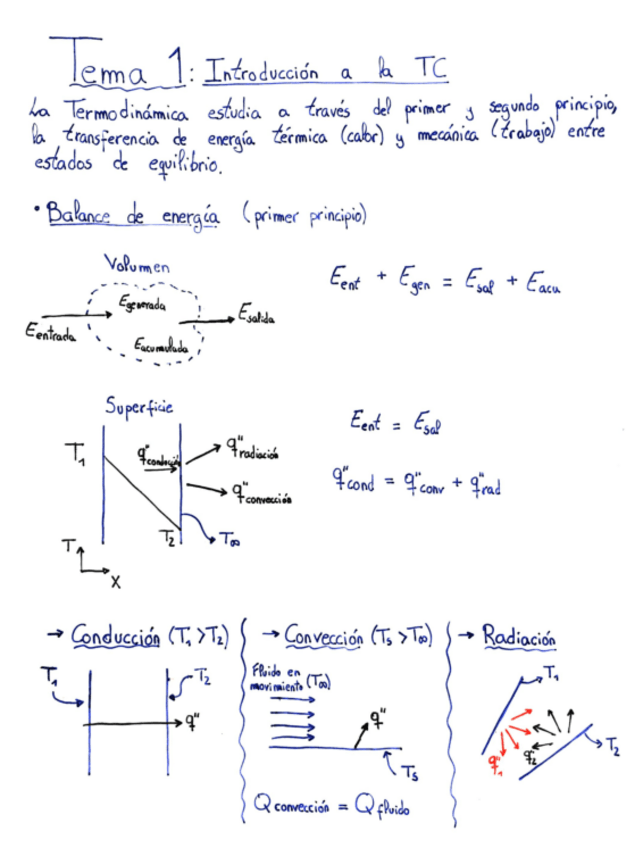 Tema 1: Introducción a la TC
La Termodinámica estudia a través del primer y segundo principio,
la transferencia de energía térmica (calor) y mecánica (trabajo) entre
estados de equilibrio.
• Balance de energía (primer principio)
Volumen
E entrada
E generada
E acumulada
E salida
E ent + E gen = E sal + E acu
Superficie
T₁
q" conducción
q" radiación
q" convección
T₂
T∞
T
x
E ent = E sal
q" cond = q" conv + q" rad
→ Conducción (T₁ > T₂)
T₁
T₂
q"
→ Convección (Ts > T∞)
Fluido en
movimiento (T∞)
q"
Ts
Q convección = Q fluido
→ Radiación
T₁
q"₁
q"₂
T₂